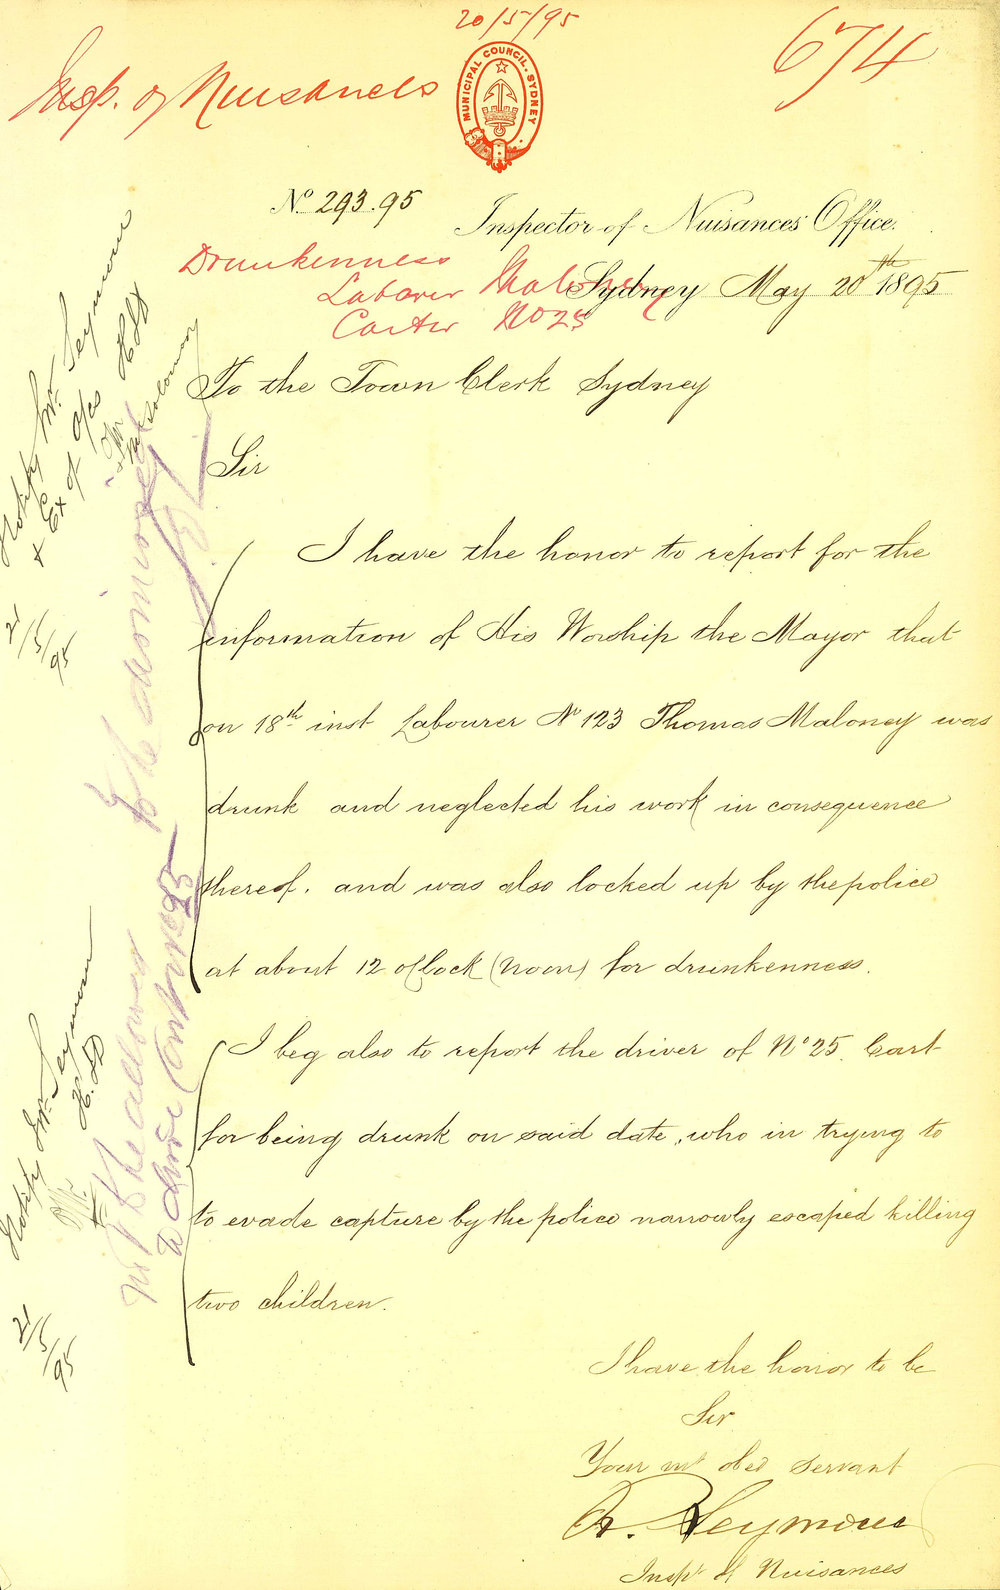 20/5/95
674
Insp. of Nuisances
MUNICIPAL COUNCIL. SYDNEY
No. 293.95
Inspector of Nuisances Office.
Drunkenness
Labourer Maloney
Carter No 25
Sydney May 20th 1895
To the Town Clerk Sydney
Sir
I have the honor to report for the
information of His Worship the Mayor that
on 18th inst Labourer No 123 Thomas Maloney was
drunk and neglected his work in consequence
thereof. and was also locked up by the police
at about 12 oClock (Noon) for drunkenness.
I beg also to report the driver of No 25. Cart
for being drunk on said date, who in trying to
to evade capture by the police narrowly escaped killing
two children.
I have the honor to be
Sir
Your mt obed servant
R. Seymour
Inspr of Nuisances
Notify Mr. Seymour
+ Ex of a/cs
21/5/95
to be dismissed
Notify Mr. Seymour
21/5/95